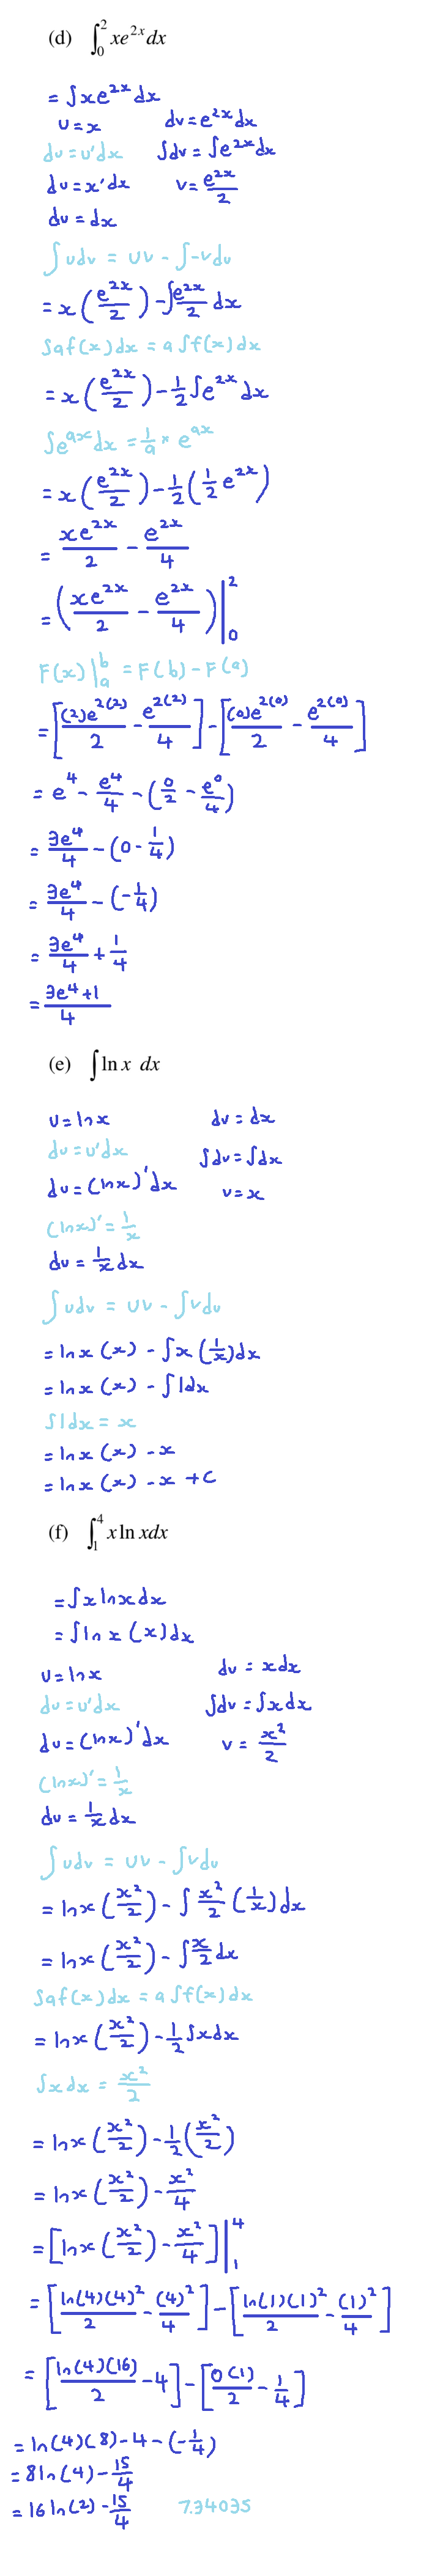 (d) ∫₀² xe^{2x} dx
= ∫xe^{2x}dx
u=x dv=e^{2x}dx
du=u'dx ∫dv=∫e^{2x}dx
du=x'dx v=e^{2x}/2
du=dx
∫udv = uv - ∫-vdu
= x(e^{2x}/2) - ∫e^{2x}/2 dx
∫af(x)dx = a∫f(x)dx
= x(e^{2x}/2) - 1/2∫e^{2x}dx
∫e^{ax}dx = 1/a * e^{ax}
= x(e^{2x}/2) - 1/2(1/2 e^{2x})
= xe^{2x}/2 - e^{2x}/4
= (xe^{2x}/2 - e^{2x}/4)|₀²
F(x)|ₐᵇ = F(b) - F(a)
= [(2)e^{2(2)}/2 - e^{2(2)}/4] - [(0)e^{2(0)}/2 - e^{2(0)}/4]
= e^4 - e^4/4 - (0/2 - e^0/4)
= 3e^4/4 - (0 - 1/4)
= 3e^4/4 - (-1/4)
= 3e^4/4 + 1/4
= 3e^4+1/4
(e) ∫ ln x dx
u=lnx dv=dx
du=u'dx ∫dv=∫dx
du=(lnx)'dx v=x
(lnx)'=1/x
du=1/x dx
∫udv = uv - ∫vdu
= lnx (x) - ∫x(1/x)dx
= lnx (x) - ∫1dx
∫1dx = x
= lnx (x) - x
= lnx (x) - x + C
(f) ∫₁⁴ x ln xdx
= ∫x lnx dx
= ∫ln x (x)dx
u=lnx dv = xdx
du=u'dx ∫dv=∫xdx
du=(lnx)'dx v = x²/2
(lnx)'=1/x
du=1/x dx
∫udv = uv - ∫vdu
= lnx(x²/2) - ∫x²/2(1/x)dx
= lnx(x²/2) - ∫x/2 dx
∫af(x)dx = a∫f(x)dx
= lnx(x²/2) - 1/2∫xdx
∫xdx = x²/2
= lnx(x²/2) - 1/2(x²/2)
= lnx(x²/2) - x²/4
= [lnx(x²/2) - x²/4]|₁⁴
= [ln(4)(4)²/2 - (4)²/4] - [ln(1)(1)²/2 - (1)²/4]
= [ln(4)(16)/2 - 4] - [0(1)/2 - 1/4]
= ln(4)(8) - 4 - (-1/4)
= 8ln(4) - 15/4
= 16ln(2) - 15/4 7.34035